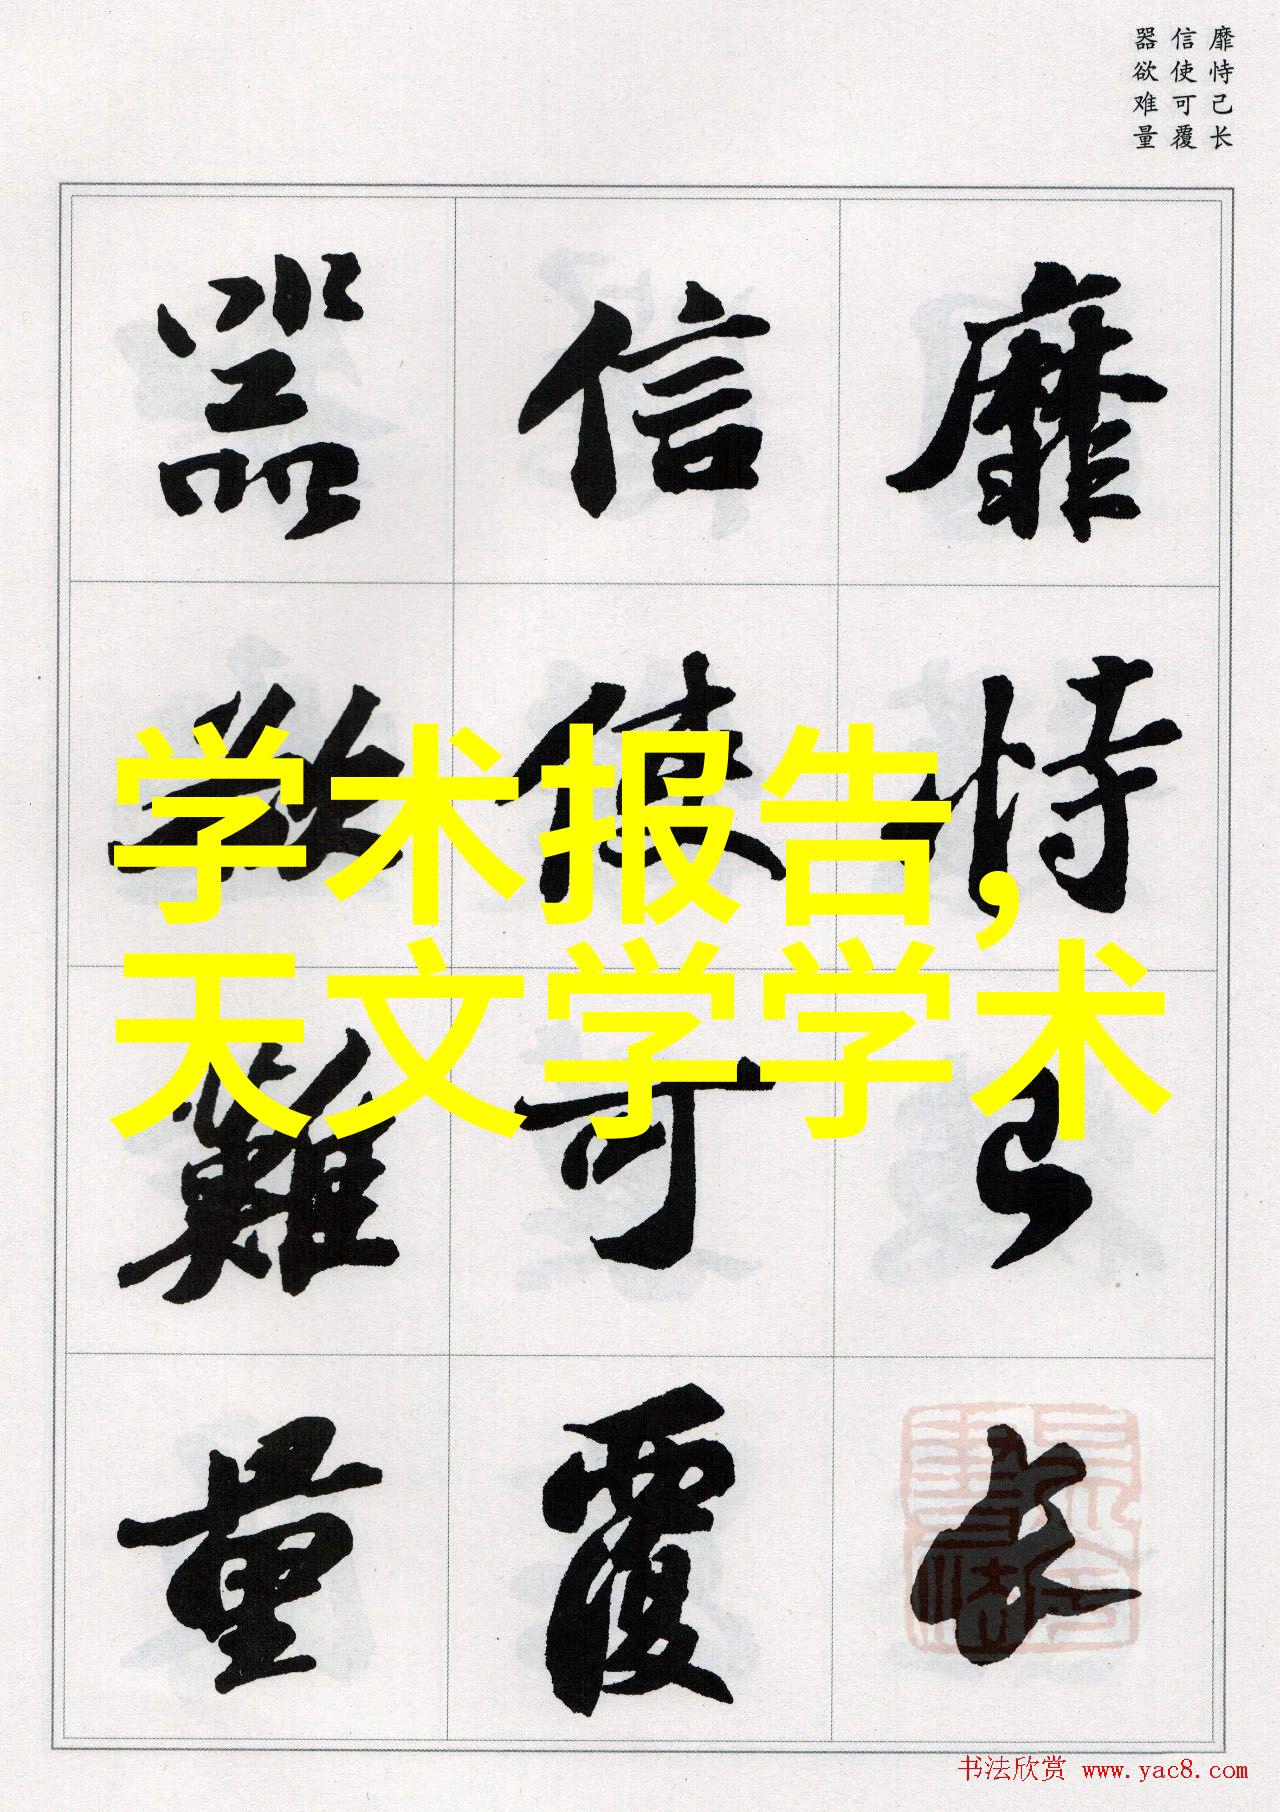 靡恃己长
信使可覆
器欲难量
靡恃己長
信使可覆
器欲難量
学术报告,
天文学学术
书法欣赏 www.yac8.com